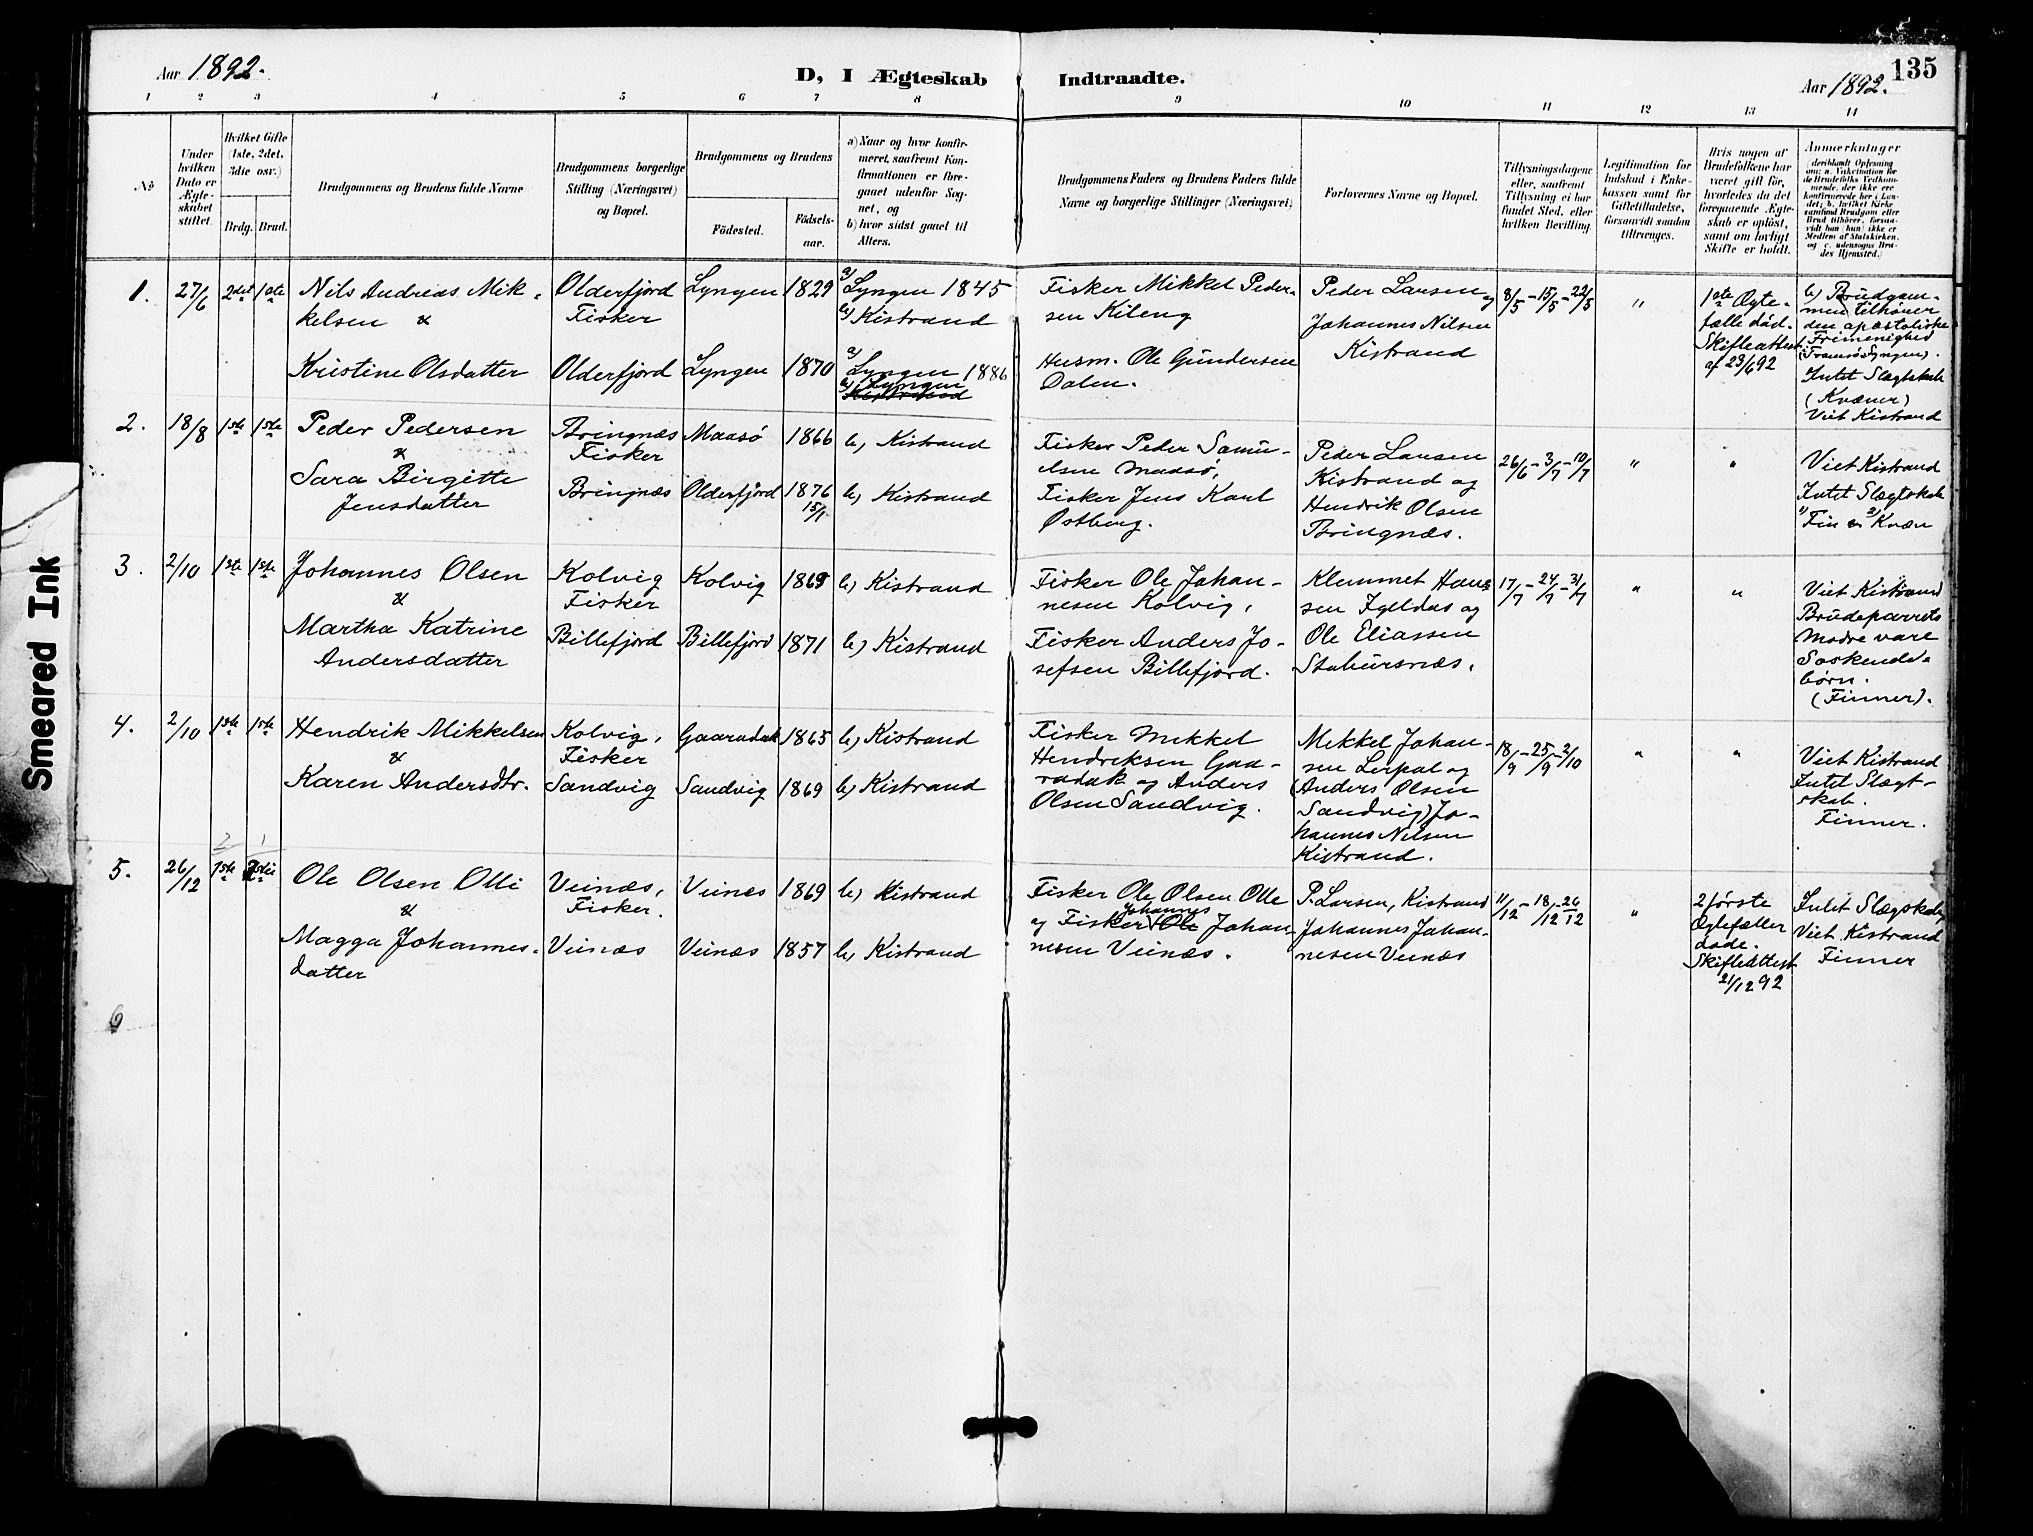 Aar 1892.
D, I Ægteskab Indtraadte.
Aar 1892.
135
1 2 3 4 5 6 7 8 9 10 11 12 13 14
No
Under
hvilken
Dato er
Ægte-
skabet
stiftet.
Hvilket Gifte
(1ste, 2det,
3die osv.)
Brdg. Brud.
Brudgommens og Brudens fulde Navne
Brudgommens borgerlige
Stilling (Næringsvei)
og Bopæl.
Brudgommens og Brudens
Födested.
Födsels-
aar.
a) Naar og hvor konfir-
meret, saafremt Kon-
firmationen er fore-
gaaet udenfor Sog-
net, og
b) hvor sidst gaaet til
Alters.
Brudgommens Faders og Brudens Faders fulde
Navne og borgerlige Stillinger (Næringsvei)
Forlovernes Navne og Bopæl.
Tillysningsdagene
eller, saafremt
Tillysning ei har
fundet Sted, efter
hvilken Bevilling.
Legitimation for
Indskud i Enke-
kassen samt for
Giftetilladelse,
forsaavidt saadan
tiltrænges.
Hvis nogen af
Brudefolkene har
været gift för,
hvorledes da det
foregaaende Ægte-
skab er oplöst,
samt om lovligt
Skifte er holdt.
Anmærkninger
(deriblandt Oplysning
om: a. Vakcination for
de Brudefolks Vedkom-
mende, der ikke ere
konfirmerede her i Lan-
det; b. hvilket Kirke
samfund Brudgom eller
Brud tilhörer, forsaa-
vidt han (hun) ikke er
Medlem af Statskirken,
og c. udensogns Bru-
des Hjemsted.)
1.
27/6
2det 1ste
Nils Andreas Mik-
kelsen &
Kristine Olsdatter
Olderfjord
Fisker
Olderfjord
Lyngen
Lyngen
1829
1870
a) Lyngen 1845
b) Kistrand
a) Lyngen 1886
b) Lyngen
Kistrand
Fisker Mikkel Peder-
sen Kileng
Husm. Ole Gundersen
Dalen.
Peder Larsen og
Johannes Nilsen
Kistrand
8/5 - 15/5 - 22/5
"
1ste Ægte-
fælle död.
Skifteattest
af 23/6 92
b) Brudgom-
men tilhörer
den apostoliske
Frimenighed
(Tromsö Lyngen).
Intet Slægtskab
(Kvæner)
Viet Kistrand
2.
18/8
1ste 1ste
Peder Pedersen
&
Sara Birgitte
Jensdatter
Bringnæs
Fisker
Bringnæs
Maasö
Olderfjord
1866
1876
15/1
b) Kistrand
b) Kistrand
Fisker Peder Samu-
elsen Maasö,
Fisker Jens Karl
Östberg.
Peder Larsen
Kistrand og
Hendrik Olsen
Bringnæs.
26/6 - 3/7 - 10/7
"
"
Viet Kistrand
Intet Slægtskab
1) Fin 2) Kvæn
3.
2/10
1ste 1ste
Johannes Olsen
&
Martha Katrine
Andersdatter
Kolvig
Fisker
Billefjord
Kolvig
Billefjord
1869
1871
b) Kistrand
b) Kistrand
Fisker Ole Johan-
nesen Kolvig,
Fisker Anders Jo-
sefsen Billefjord.
Klemmet Han-
sen Igeldas og
Ole Eliassen
Stabursnæs.
17/7 - 24/7 - 31/7
"
"
Viet Kistrand
Brudeparrets
Mödre vare
Söskende-
börn.
(Finner).
4.
2/10
1ste 1ste
Hendrik Mikkelsen
&
Karen Andersdtr.
Kolvig,
Fisker
Sandvig
Gaaradak
Sandvig
1865
1869
b) Kistrand
b) Kistrand
Fisker Mikkel
Hendriksen Gaa-
radak og Anders
Olsen Sandvig.
Mikkel Johan-
sen Lerpol og
(Anders Olsen
Sandvig) Jo-
hannes Nilsen
Kistrand.
18/9 - 25/9 - 2/10
"
"
Viet Kistrand
Intet Slægt-
skab.
Finner.
2 1
5.
26/12
1ste
Ole Olsen Olli
&
Magga Johannes-
datter
Veinæs,
Fisker.
Veinæs
Veinæs
Veinæs
1869
1857
b) Kistrand
b) Kistrand
Fisker Ole Olsen Olle
og Fisker Johannes Ole Johan-
nesen Veinæs.
P. Larsen, Kistrand
Johannes Johan-
nesen Veinæs
11/12 - 18/12 - 26/12
"
2 förste
Ægtefæller
döde.
Skifteattest
21/12 92
Intet Slægskab,
Viet Kistrand
Finner
6
Smeared Ink